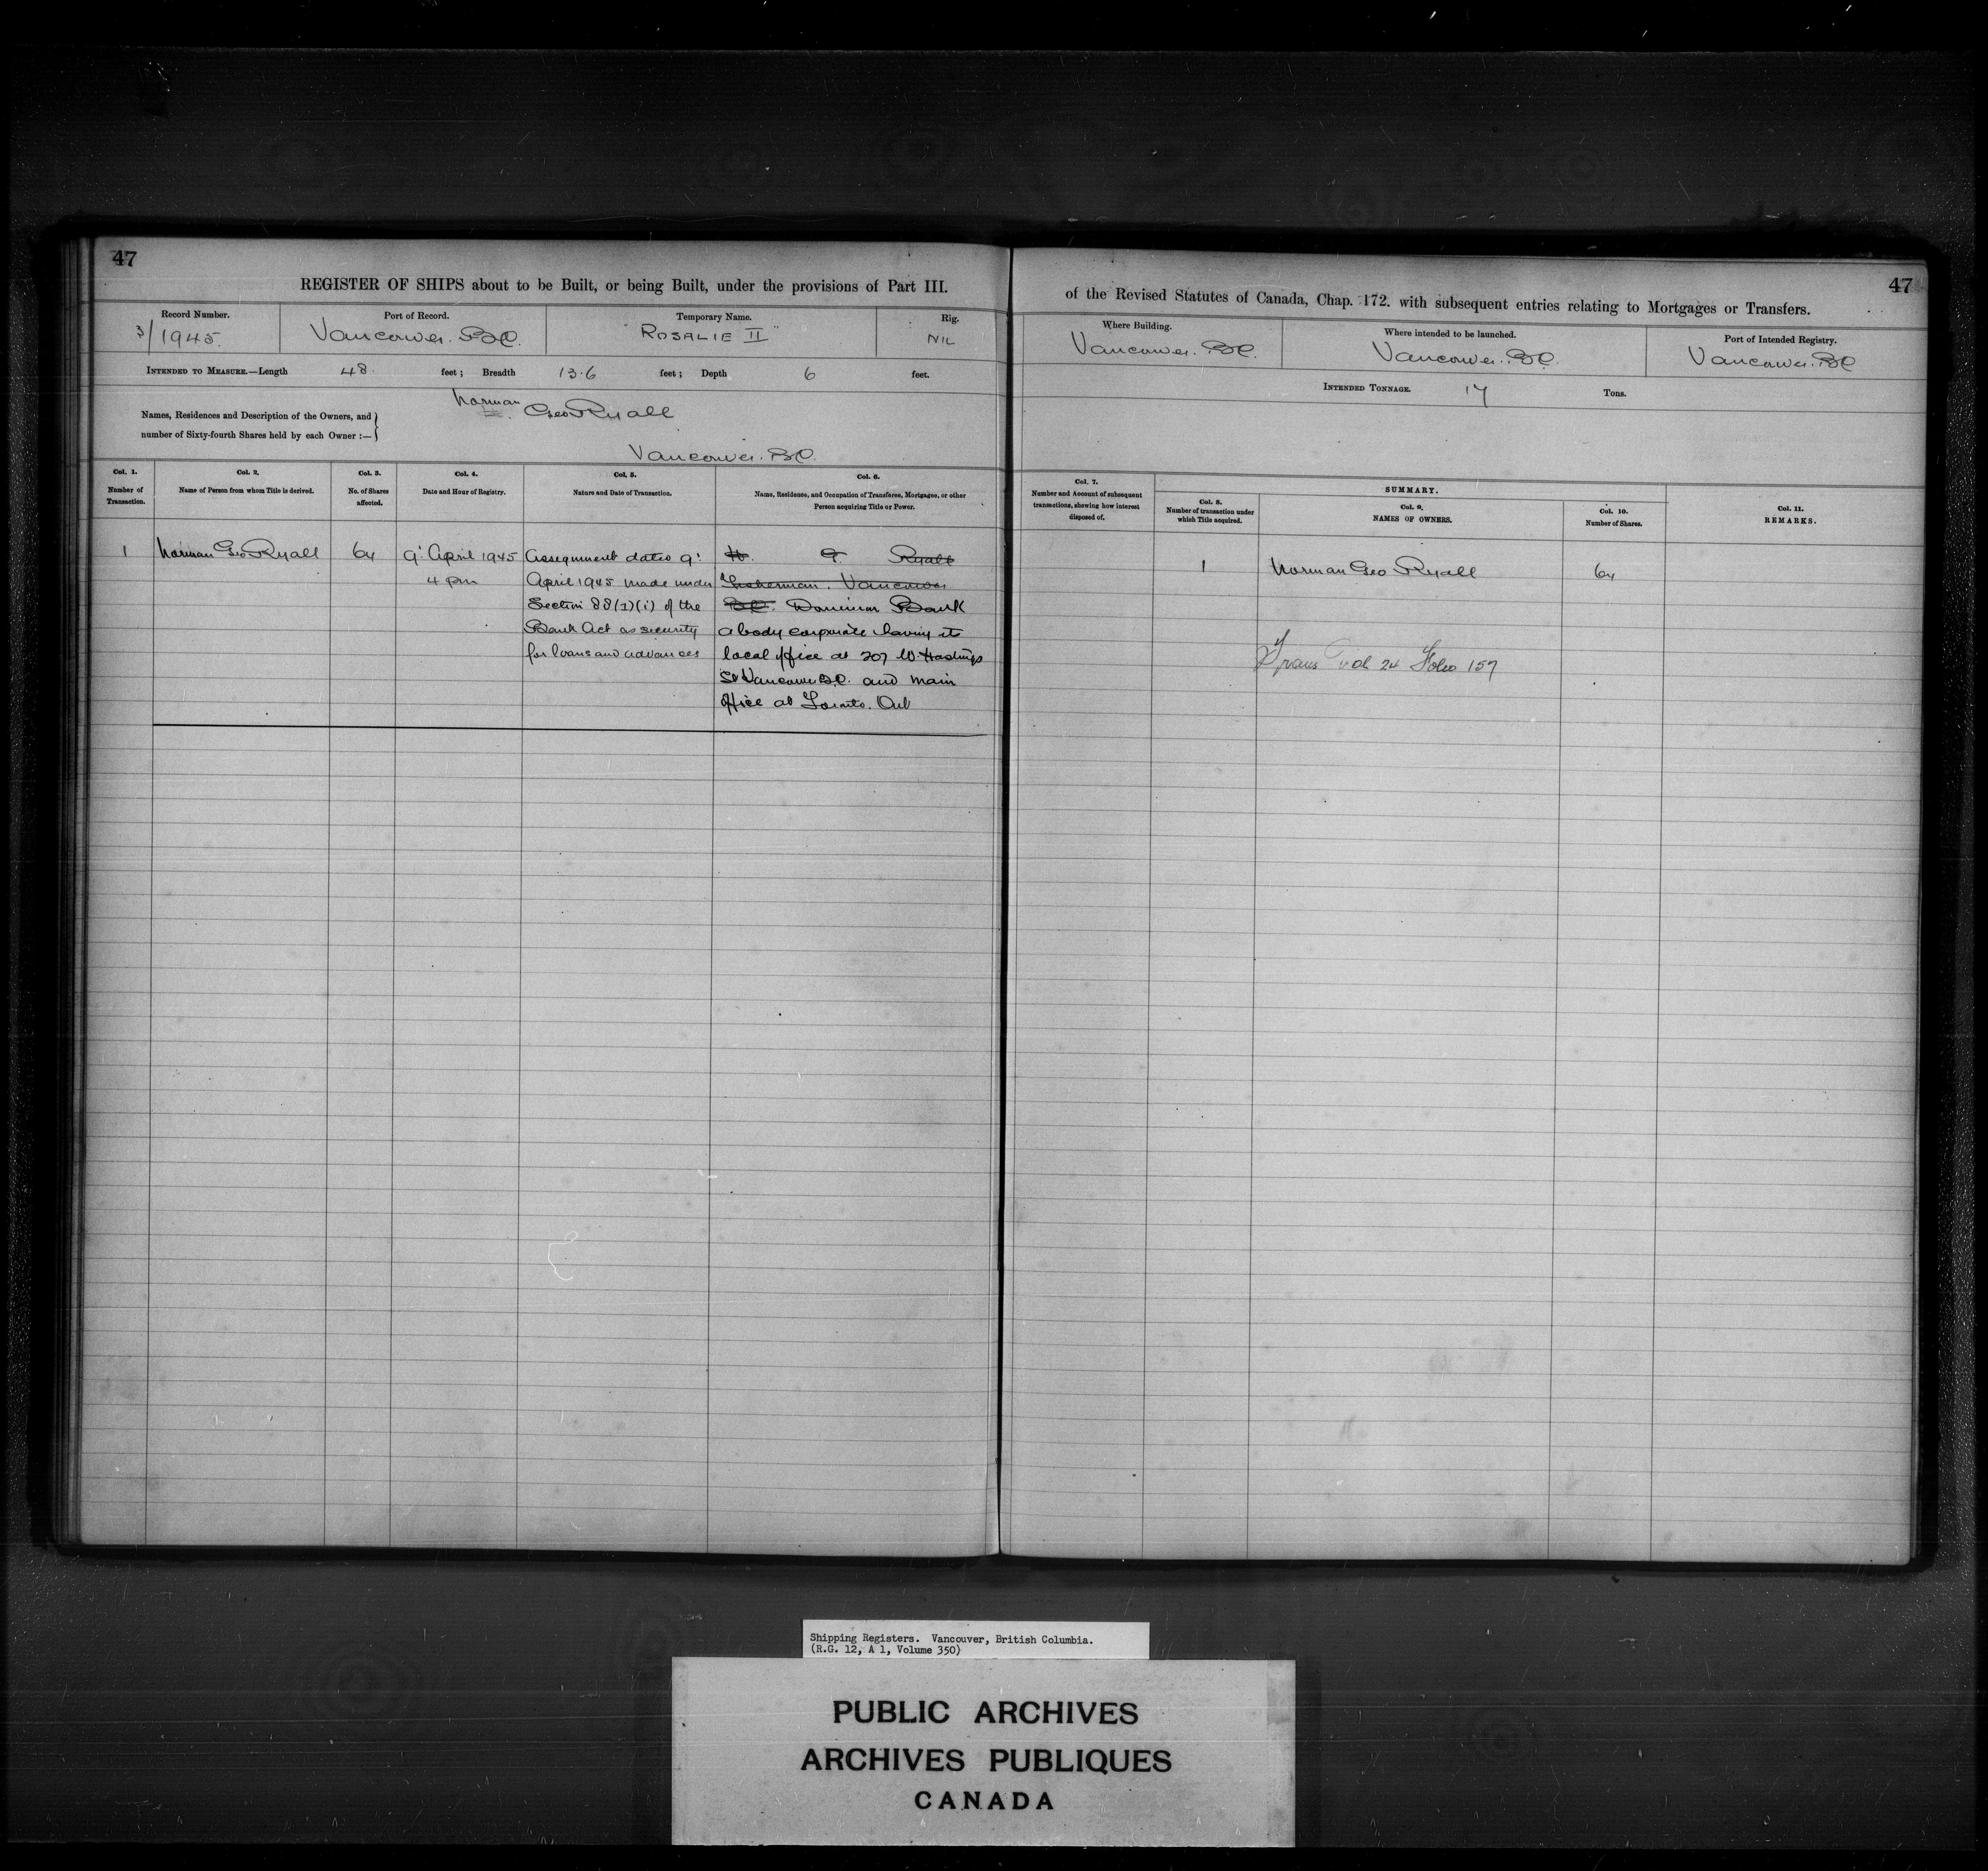 47
REGISTER OF SHIPS about to be Built, or being Built, under the provisions of Part III.
Record Number.
3/1945.
Port of Record.
Vancouver. B.C.
Temporary Name.
"ROSALIE II"
Rig.
NIL
INTENDED TO MEASURE.—Length 48. feet; Breadth 13.6 feet; Depth 6 feet.
Names, Residences and Description of the Owners, and
number of Sixty-fourth Shares held by each Owner :—
Norman Geo Ryall
Vancouver. B.C.
Col. 1.
Number of
Transaction.
Col. 2.
Name of Person from whom Title is derived.
Col. 3.
No. of Shares
affected.
Col. 4.
Date and Hour of Registry.
Col. 5.
Nature and Date of Transaction.
Col. 6.
Name, Residence, and Occupation of Transferee, Mortgagee, or other
Person acquiring Title or Power.
1
Norman Geo Ryall
64
9: April 1945
4 pm
Assignment dated 9:
April 1945 made under
Section 88(1)(i) of the
Bank Act as security
for loans and advances
Ryall
Fisherman. Vancouver
B.C. Dominion Bank
a body corporate having its
local office at 207 W. Hastings
St Vancouver B.C. and main
office at Toronto. Ont
47
of the Revised Statutes of Canada, Chap. 172. with subsequent entries relating to Mortgages or Transfers.
Where Building.
Vancouver. B.C.
Where intended to be launched.
Vancouver. B.C.
Port of Intended Registry.
Vancouver. B.C
INTENDED TONNAGE. 17 Tons.
Col. 7.
Number and Account of subsequent
transactions, showing how interest
disposed of.
SUMMARY.
Col. 8.
Number of transaction under
which Title acquired.
Col. 9.
NAMES OF OWNERS.
Col. 10.
Number of Shares.
Col. 11.
REMARKS.
1
Norman Geo Ryall
64
Trans Vol 24 Folio 157
Shipping Registers. Vancouver, British Columbia.
(R.G. 12, A 1, Volume 350)
PUBLIC ARCHIVES
ARCHIVES PUBLIQUES
CANADA